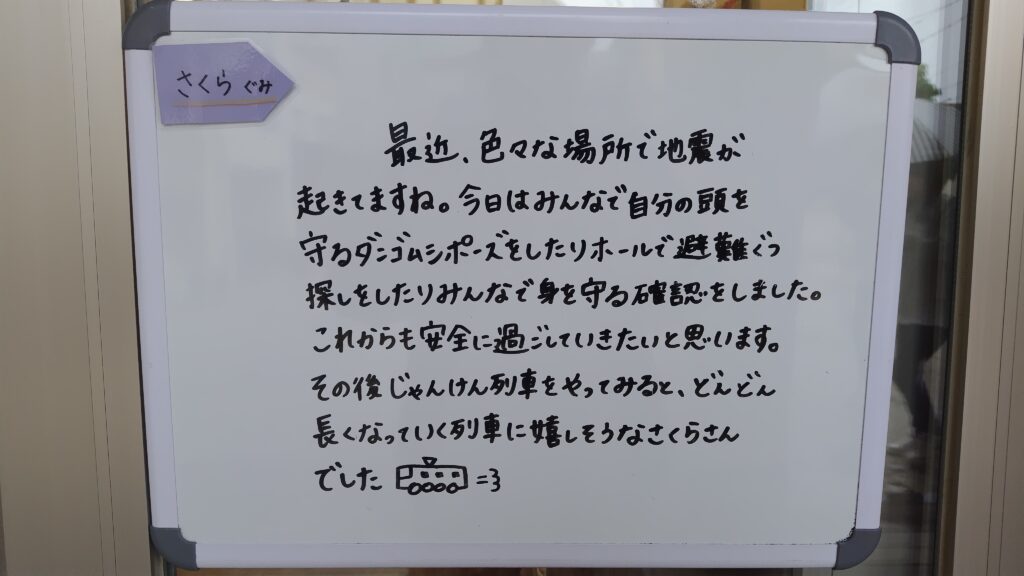 さくら ぐみ
最近、色々な場所で地震が
起きてますね。今日はみんなで自分の頭を
守るダンゴムシポーズをしたりホールで避難ぐつ
探しをしたりみんなで身を守る確認をしました。
これからも安全に過ごしていきたいと思います。
その後じゃんけん列車をやってみると、どんどん
長くなっていく列車に嬉しそうなさくらさん
でした